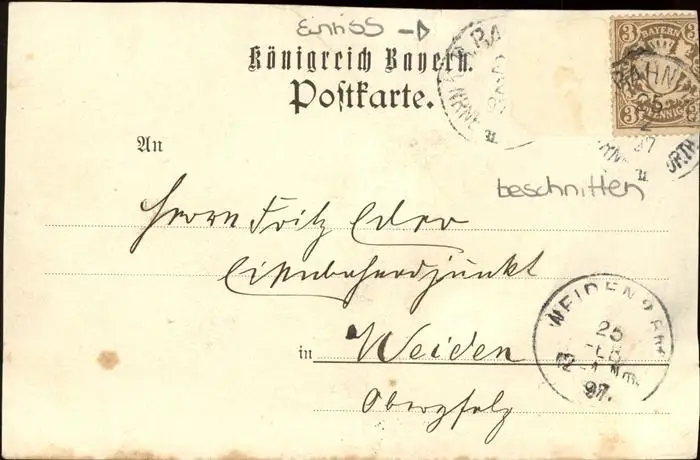 Einriss
Königreich Bayern.
Postkarte.
3 BAYERN 3
3 PFENNIG 3
BAHN
25
2
97
An
beschnitten
Herrn Fritz Eder
Eisenbahnadjunkt
in Weiden
Oberpfalz
WEIDEN 2 Bhf
25
FEB
12-1 Nm.
97.